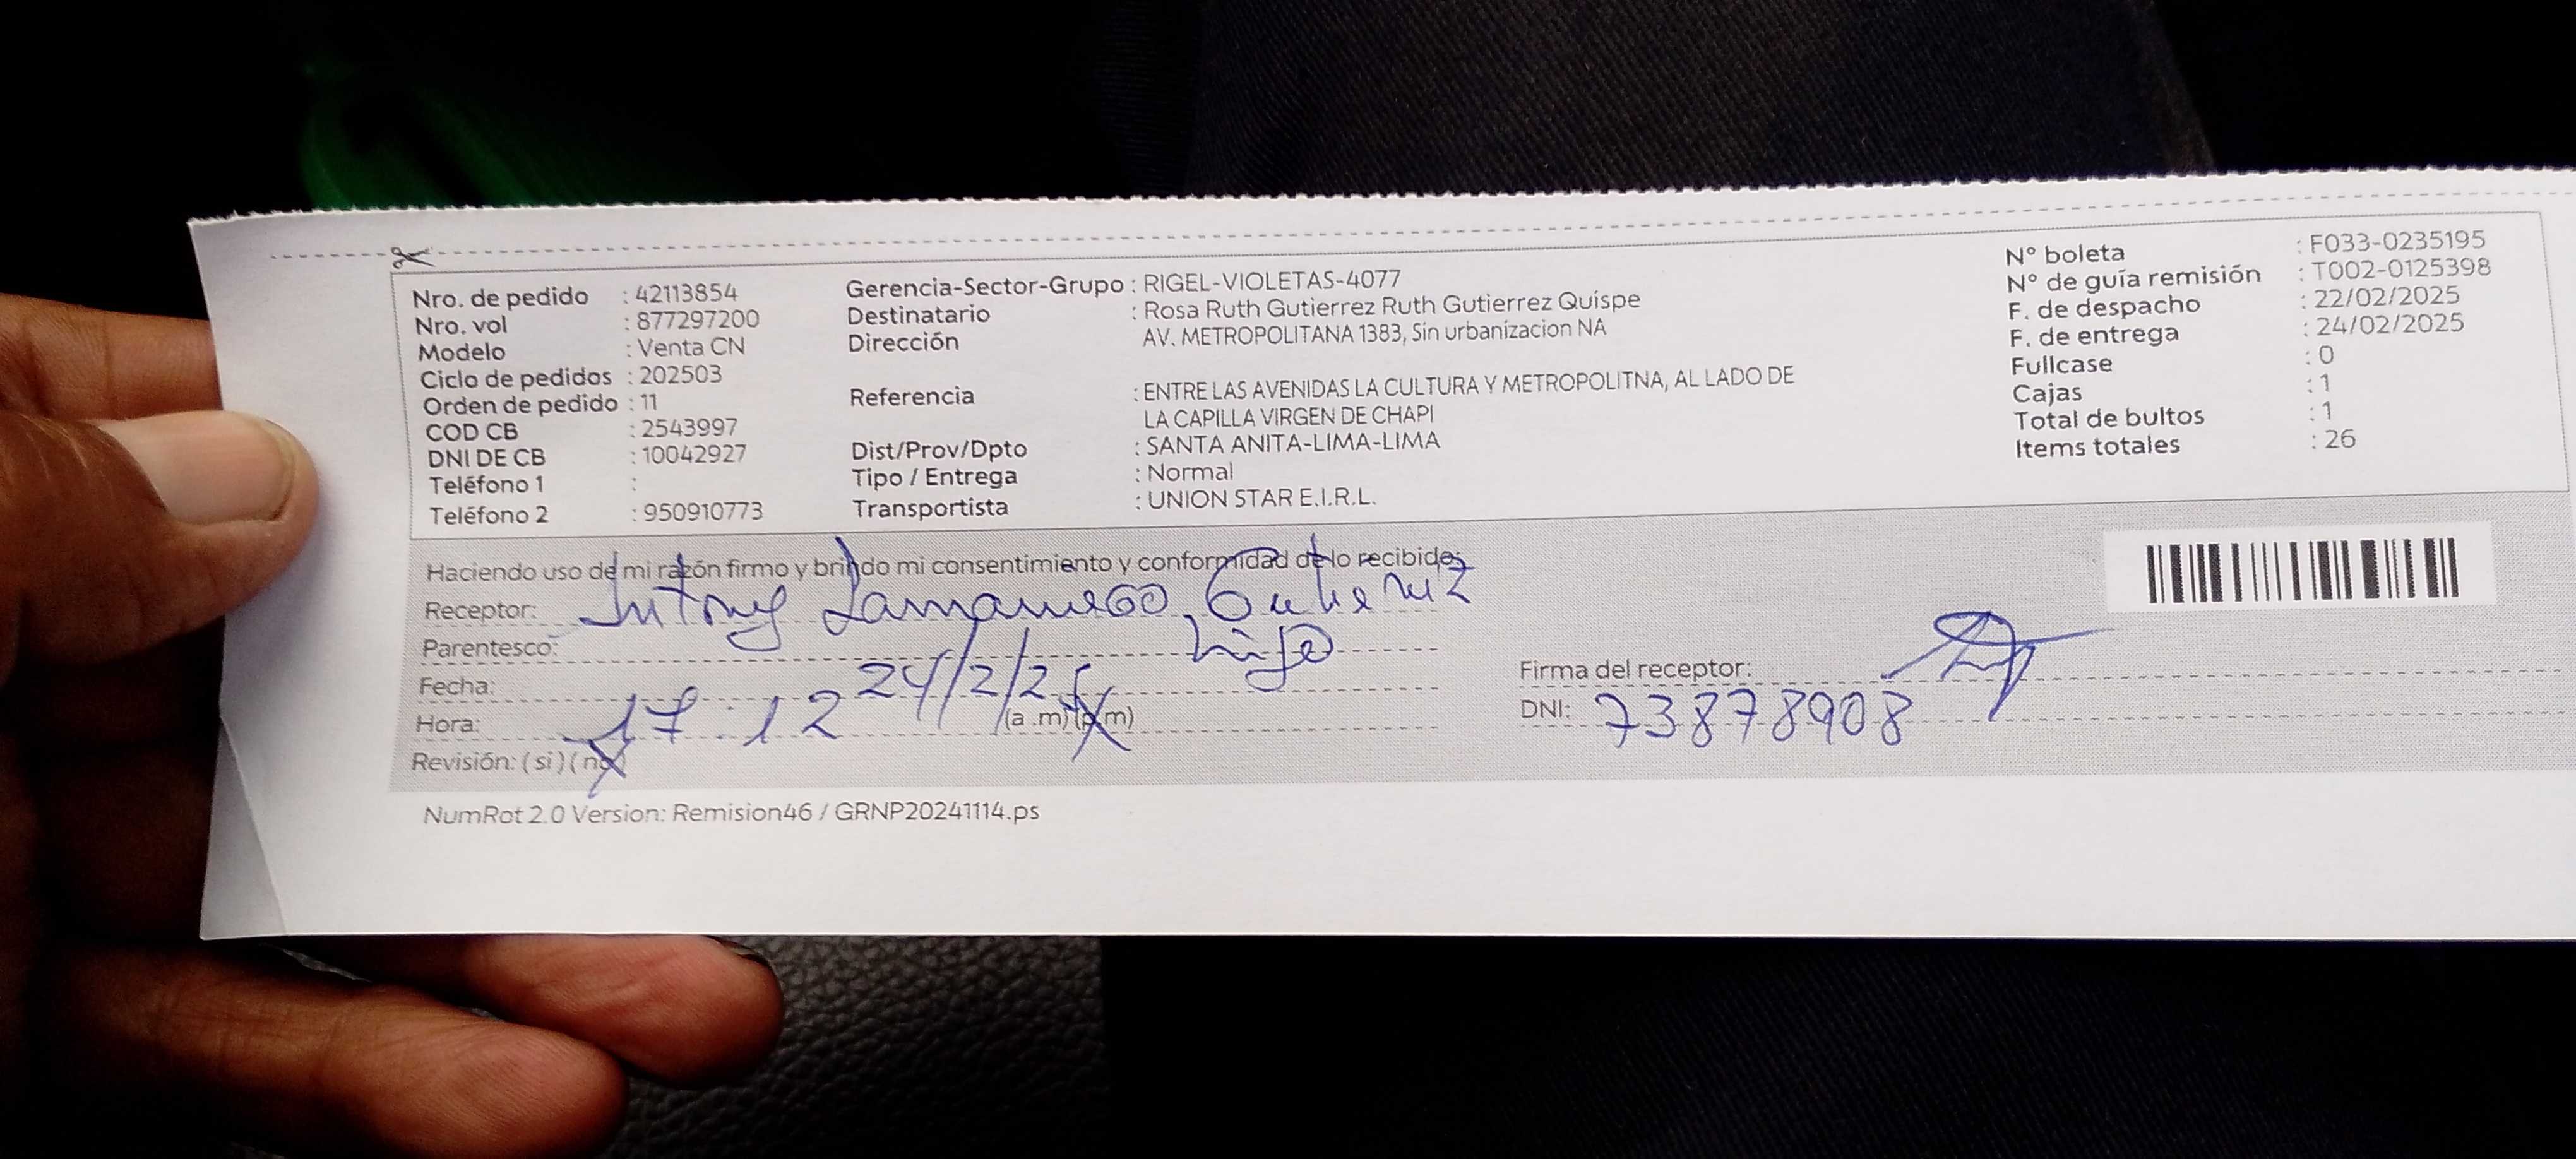 Nro. de pedido : 42113854
Nro. vol : 877297200
Modelo : Venta CN
Ciclo de pedidos : 202503
Orden de pedido : 11
COD CB : 2543997
DNI DE CB : 10042927
Teléfono 1 :
Teléfono 2 : 950910773
Gerencia-Sector-Grupo : RIGEL-VIOLETAS-4077
Destinatario : Rosa Ruth Gutierrez Ruth Gutierrez Quispe
Dirección AV. METROPOLITANA 1383, Sin urbanizacion NA
Referencia : ENTRE LAS AVENIDAS LA CULTURA Y METROPOLITNA, AL LADO DE
LA CAPILLA VIRGEN DE CHAPI
Dist/Prov/Dpto : SANTA ANITA-LIMA-LIMA
Tipo / Entrega : Normal
Transportista : UNION STAR E.I.R.L.
N° boleta : F033-0235195
N° de guía remisión : T002-0125398
F. de despacho : 22/02/2025
F. de entrega : 24/02/2025
Fullcase : 0
Cajas : 1
Total de bultos : 1
Items totales : 26
Haciendo uso de mi razón firmo y brindo mi consentimiento y conformidad de lo recibido:
Receptor:
Parentesco: hijo
Fecha: 24/2/25
Hora: 17:12 (a .m) (p.m)
Revisión: ( si ) ( no )
Firma del receptor:
DNI: 73878908
NumRot 2.0 Version: Remision46 / GRNP20241114.ps